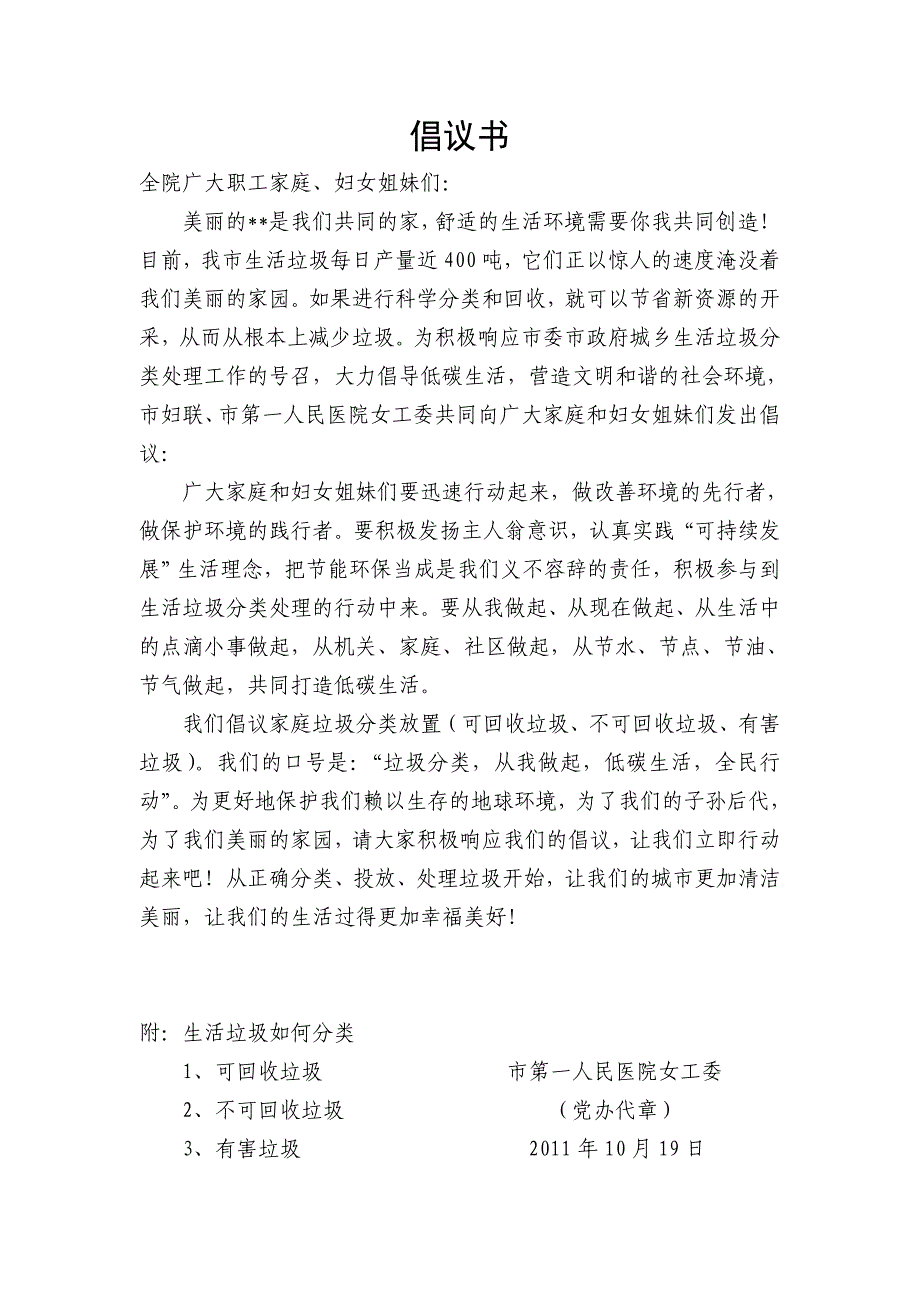 倡议书
全院广大职工家庭、妇女姐妹们：
美丽的**是我们共同的家，舒适的生活环境需要你我共同创造！
目前，我市生活垃圾每日产量近400吨，它们正以惊人的速度淹没着
我们美丽的家园。如果进行科学分类和回收，就可以节省新资源的开
采，从而从根本上减少垃圾。为积极响应市委市政府城乡生活垃圾分
类处理工作的号召，大力倡导低碳生活，营造文明和谐的社会环境，
市妇联、市第一人民医院女工委共同向广大家庭和妇女姐妹们发出倡
议：
广大家庭和妇女姐妹们要迅速行动起来，做改善环境的先行者，
做保护环境的践行者。要积极发扬主人翁意识，认真实践“可持续发
展”生活理念，把节能环保当成是我们义不容辞的责任，积极参与到
生活垃圾分类处理的行动中来。要从我做起、从现在做起、从生活中
的点滴小事做起，从机关、家庭、社区做起，从节水、节点、节油、
节气做起，共同打造低碳生活。
我们倡议家庭垃圾分类放置（可回收垃圾、不可回收垃圾、有害
垃圾）。我们的口号是：“垃圾分类，从我做起，低碳生活，全民行
动”。为更好地保护我们赖以生存的地球环境，为了我们的子孙后代，
为了我们美丽的家园，请大家积极响应我们的倡议，让我们立即行动
起来吧！从正确分类、投放、处理垃圾开始，让我们的城市更加清洁
美丽，让我们的生活过得更加幸福美好！
附：生活垃圾如何分类
1、可回收垃圾 市第一人民医院女工委
2、不可回收垃圾 （党办代章）
3、有害垃圾 2011年10月19日